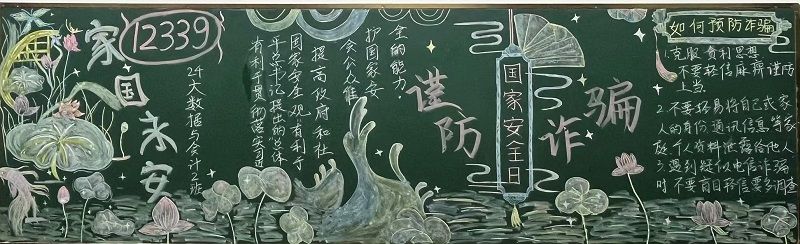 家国永安
12339
24大数据与会计2班
有利于贯彻落实习
近平总书记提出的总体
国家安全观有利于
提高政府和社
会公众维
护国家安
全的能力.
谨防诈骗
国家安全日
如何预防诈骗
1.克服贪利思想
不要轻信麻痹谨防
上当
2.不要轻易将自己或家
人的身份通讯信息等家
庭个人资料泄露给他人
3.遇到疑似电信诈骗
时不要盲目轻信要多调查